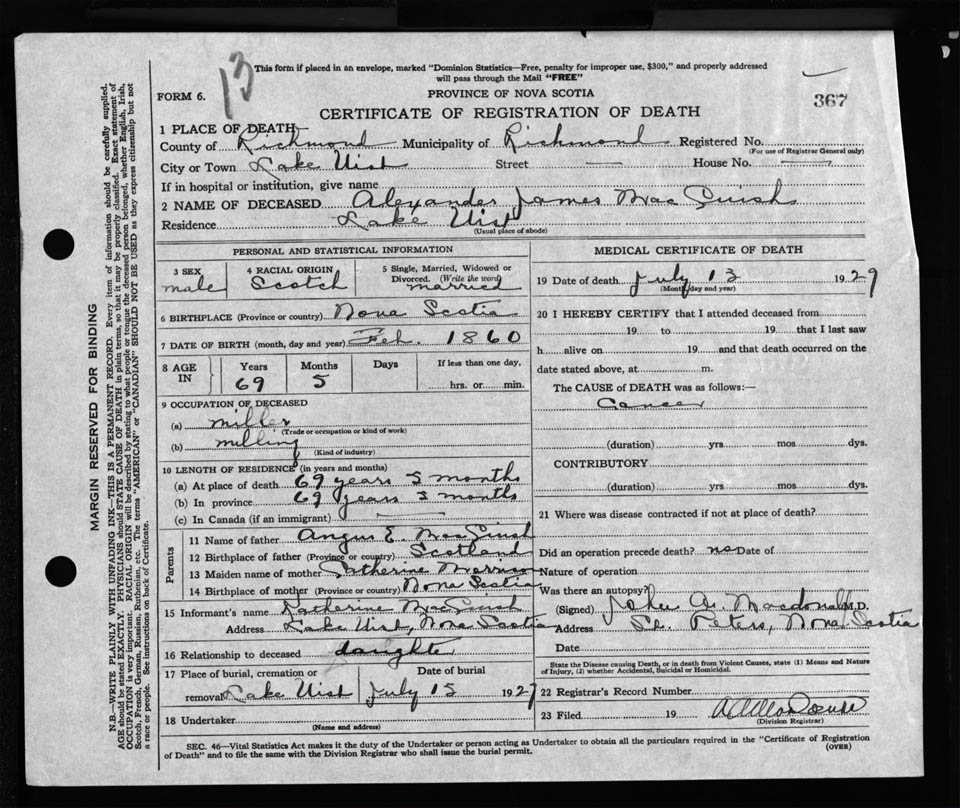 13
This form if placed in an envelope, marked "Dominion Statistics—Free, penalty for improper use, $300," and properly addressed
will pass through the Mail "FREE"
FORM 6.
PROVINCE OF NOVA SCOTIA
367
CERTIFICATE OF REGISTRATION OF DEATH
1 PLACE OF DEATH—
County of Richmond Municipality of Richmond Registered No.
(For use of Registrar General only)
City or Town Lake Uist Street — House No. —
If in hospital or institution, give name
2 NAME OF DECEASED Alexander James MacCuish
Residence Lake Uist
(Usual place of abode)
PERSONAL AND STATISTICAL INFORMATION
3 SEX
male
4 RACIAL ORIGIN
Scotch
5 Single, Married, Widowed or
Divorced. (Write the word)
married
6 BIRTHPLACE (Province or country) Nova Scotia
7 DATE OF BIRTH (month, day and year) Feb. 1860
8 AGE
IN
Years
69
Months
5
Days
If less than one day,
hrs. or min.
9 OCCUPATION OF DECEASED
(a) miller
(Trade or occupation or kind of work)
(b) milling
(Kind of industry)
10 LENGTH OF RESIDENCE (in years and months)
(a) At place of death 69 years 5 months
(b) In province 69 years 5 months
(c) In Canada (if an immigrant) —
Parents
11 Name of father Angus E. MacCuish
12 Birthplace of father (Province or country) Scotland
13 Maiden name of mother Catherine Morrison
14 Birthplace of mother (Province or country) Nova Scotia
15 Informant's name Katherine MacCuish
Address Lake Uist, Nova Scotia
16 Relationship to deceased daughter
17 Place of burial, cremation or
Date of burial
removal Lake Uist July 15 1929
18 Undertaker
(Name and address)
MEDICAL CERTIFICATE OF DEATH
19 Date of death July 13 1929
(Month, day and year)
20 I HEREBY CERTIFY that I attended deceased from
19 to 19 that I last saw
h alive on 19 and that death occurred on the
date stated above, at m.
The CAUSE of DEATH was as follows:—
Cancer
(duration) yrs mos dys.
CONTRIBUTORY
(duration) yrs mos dys.
21 Where was disease contracted if not at place of death?
Did an operation precede death? no Date of
Nature of operation
Was there an autopsy?
(Signed) John A. Macdonald M.D.
Address St. Peters, Nova Scotia
Date
State the Disease causing Death, or in death from Violent Causes, state (1) Means and Nature
of Injury, (2) whether Accidental, Suicidal or Homicidal.
22 Registrar's Record Number
23 Filed 19
(Division Registrar)
SEC. 46—Vital Statistics Act makes it the duty of the Undertaker or person acting as Undertaker to obtain all the particulars required in the "Certificate of Registration
of Death" and to file the same with the Division Registrar who shall issue the burial permit.
(OVER)
MARGIN RESERVED FOR BINDING
N.B.—WRITE PLAINLY WITH UNFADING INK—THIS IS A PERMANENT RECORD. Every item of information should be carefully supplied.
AGE should be stated EXACTLY. PHYSICIANS should STATE CAUSE OF DEATH in plain terms, so that it may be properly classified. Exact statement of
OCCUPATION is very important. RACIAL ORIGIN will be described by stating to what people or tongue the deceased person belonged, whether English, Irish,
Scotch, French, German, Russian, Ruthenian, etc. The terms "AMERICAN" or "CANADIAN" SHOULD NOT BE USED as they express citizenship but not
a race or people. See instructions on back of Certificate.